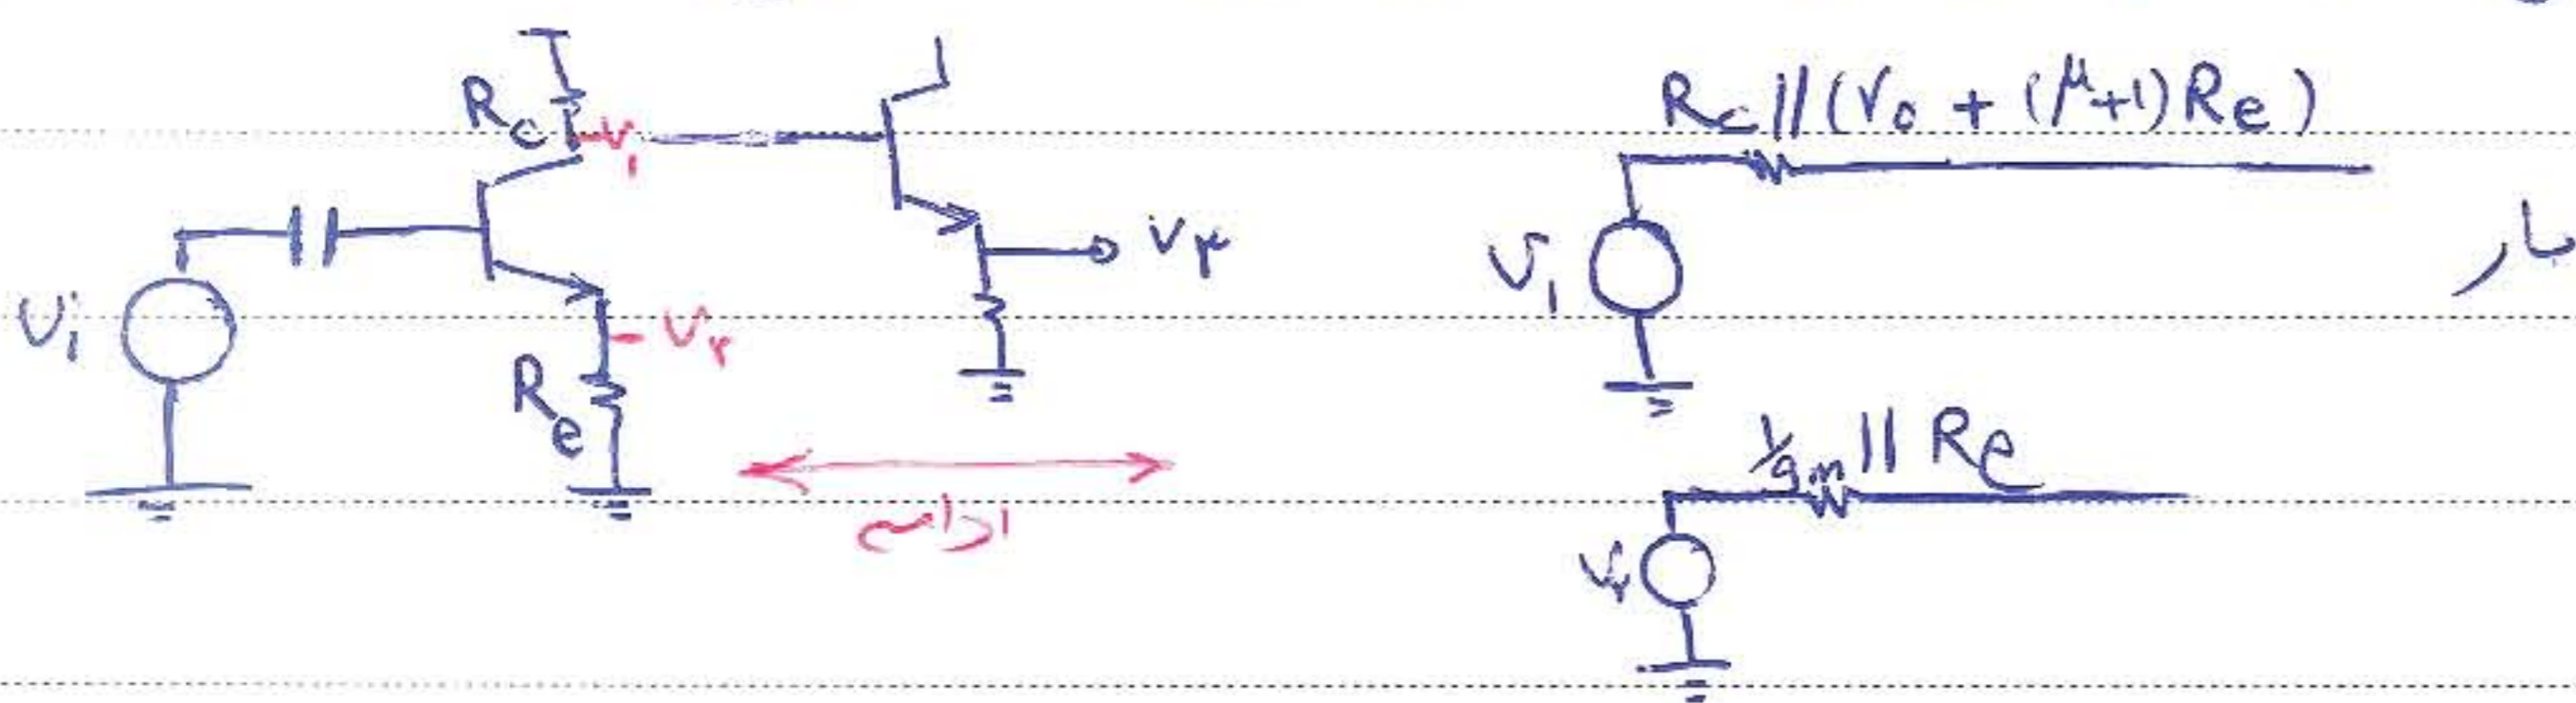 Rc
V₁
Vᵢ
V۲
Re
V۳
ادامه
Rc||(ro + (μ+1)Re)
V₁
بار
1/gm || Re
V۲